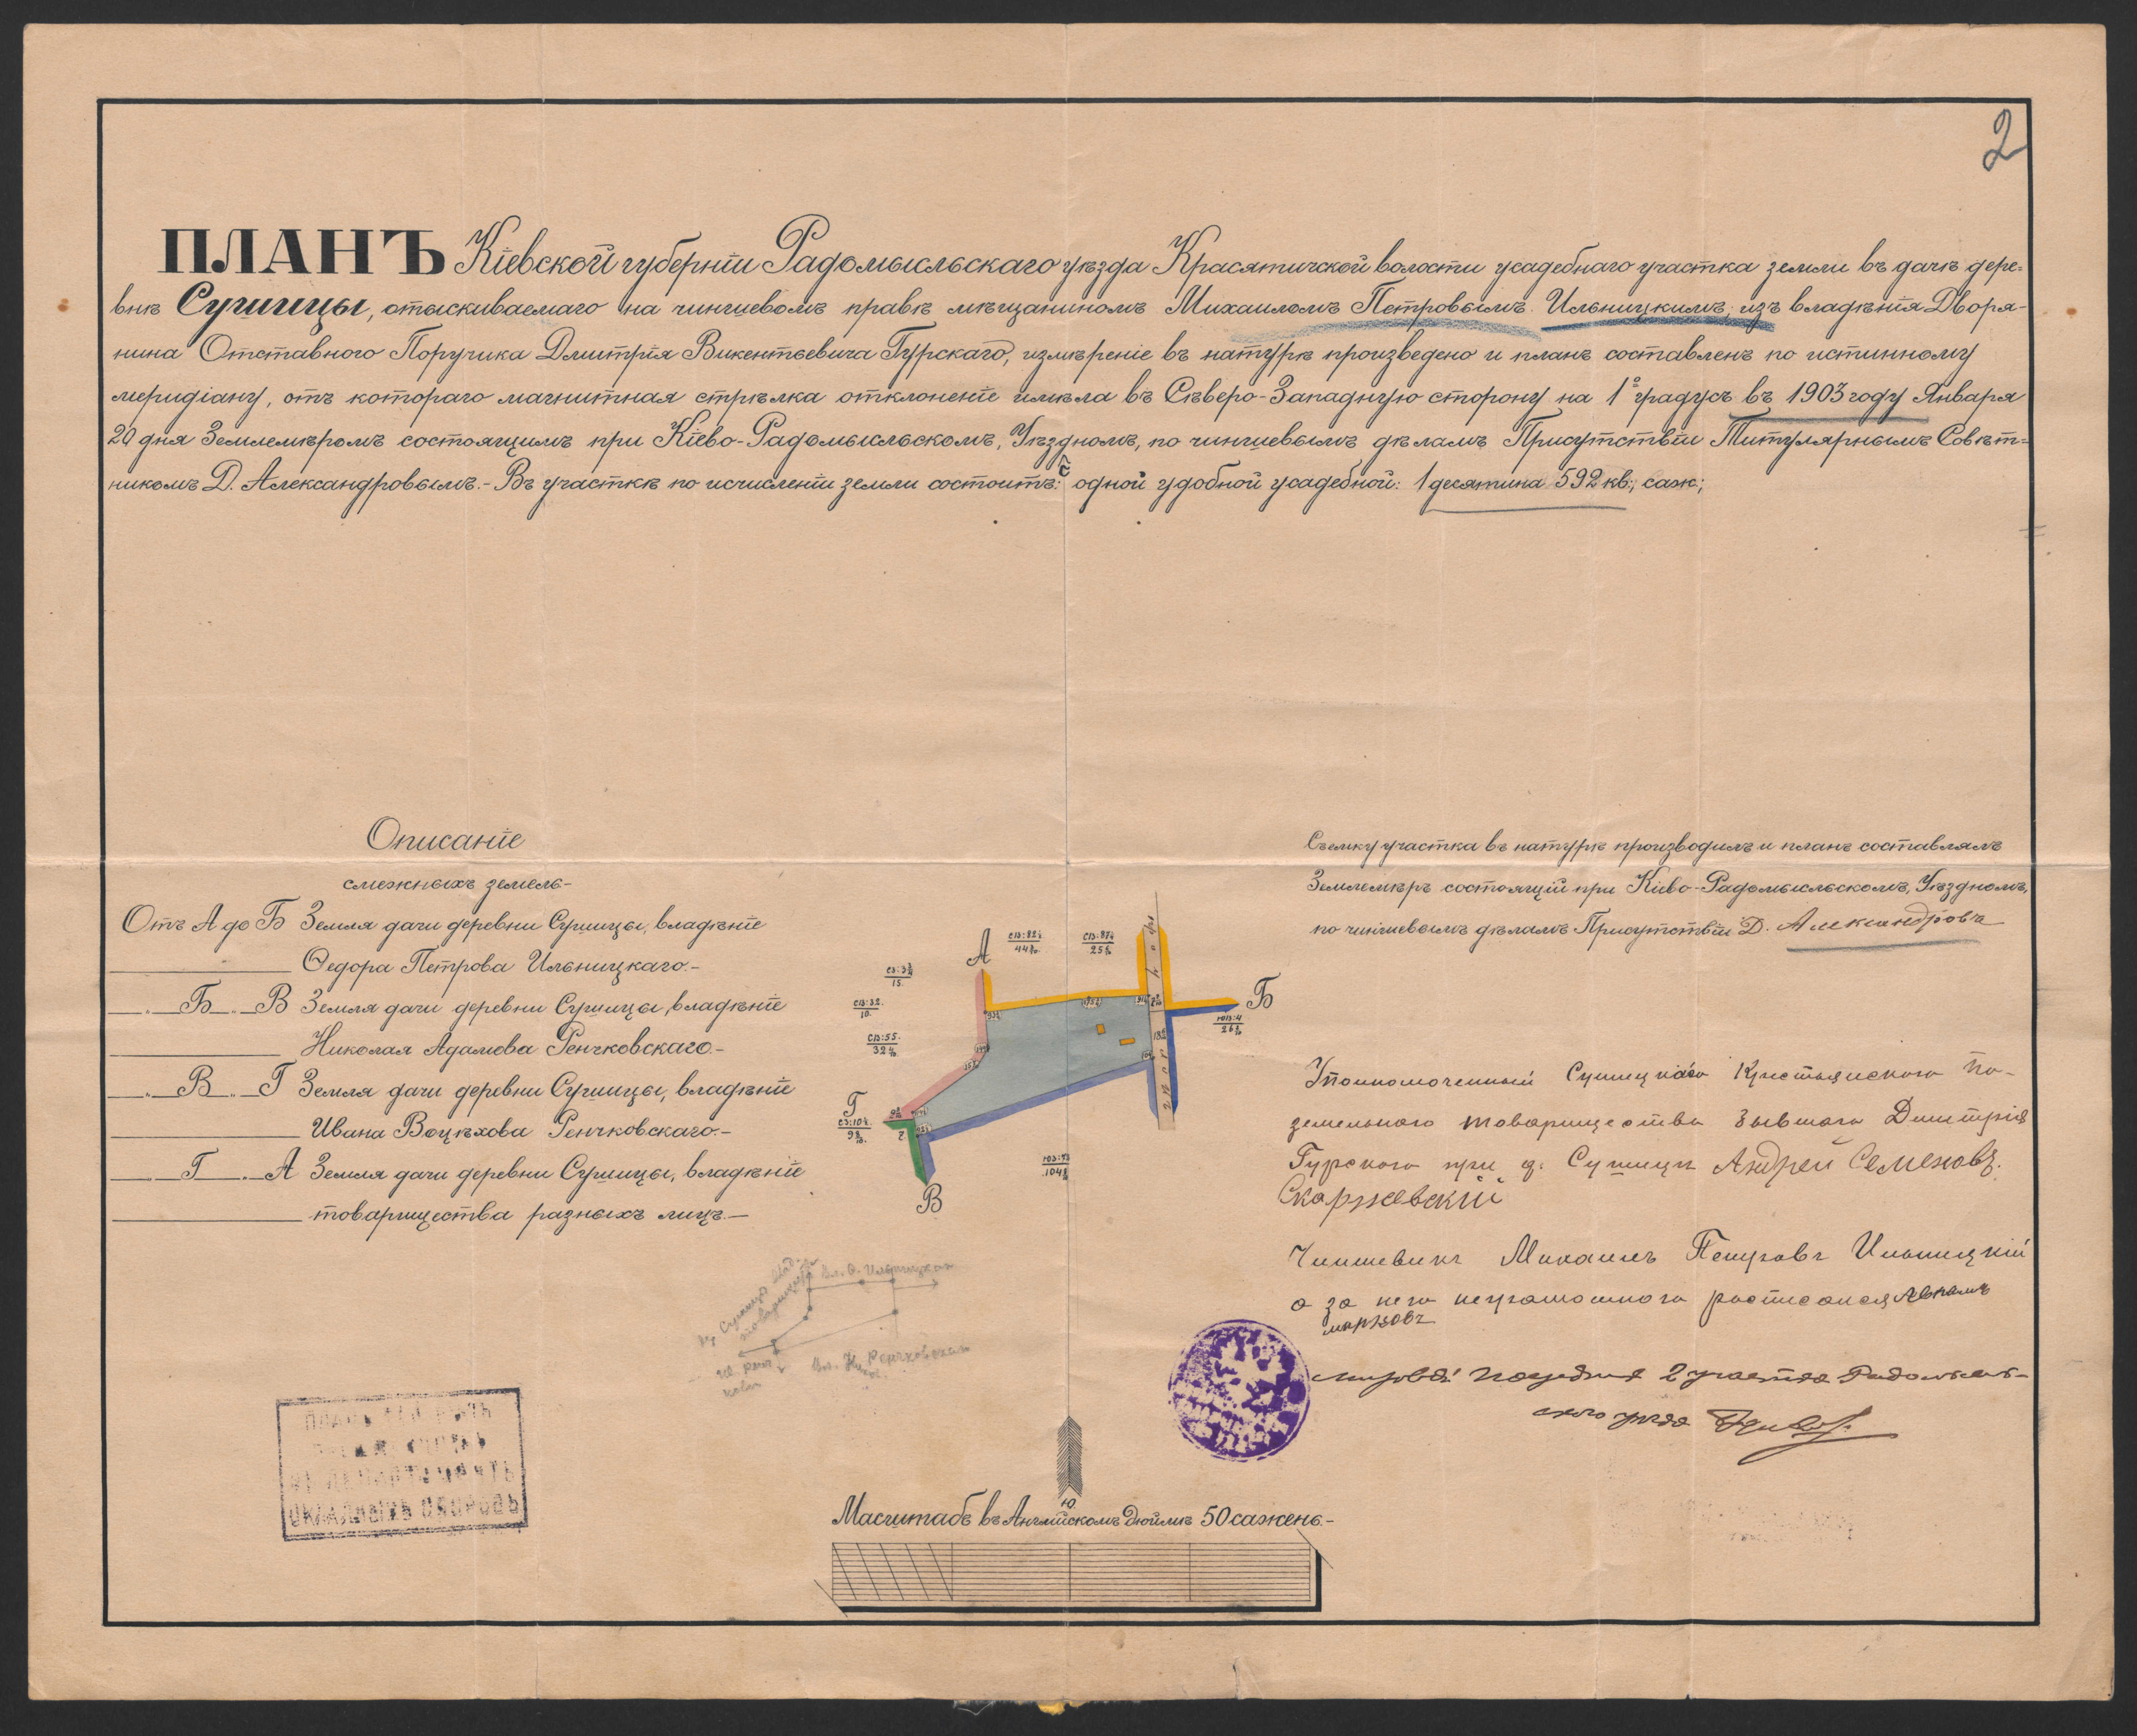 2
ПЛАНЪ Кіевской губерніи Радомысльскаго уѣзда Красятичской волости усадебнаго участка земли въ дачѣ дере-
внѣ Сушицы, отыскиваемаго на чиншевомъ правѣ мѣщаниномъ Михаиломъ Петровымъ Ильницкимъ, изъ владѣнія Дворя-
нина Отставного Поручика Дмитрія Викентьевича Гурскаго, измѣреніе въ натурѣ произведено и планъ составленъ по истинному
меридіану, отъ котораго магнитная стрѣлка отклоненіе имѣла въ Сѣверо-Западную сторону на 1° градусъ въ 1903 году Января
20 дня Землемѣромъ состоящимъ при Кіево-Радомысльскомъ, Уѣздномъ, по чиншевымъ дѣламъ Присутствіи Титулярнымъ Совѣт-
никомъ Д. Александровымъ.- Въ участкѣ по исчисленіи земли состоитъ: одной удобной усадебной: 1 десятина 592 кв; саж;
Описаніе
смежныхъ земель-
Отъ А до Б Земля дачи деревни Сушицы, владѣніе
Ѳедора Петрова Ильницкаго.-
Б В Земля дачи деревни Сушицы, владѣніе
Николая Адамова Ренчковскаго-
В Г Земля дачи деревни Сушицы, владѣніе
Ивана Воцѣхова Ренчковскаго.-
Г А Земля дачи деревни Сушицы, владѣніе
товарищества разныхъ лицъ.-
А
Б
Г
В
С
Съемку участка въ натурѣ производилъ и планъ составлялъ
Землемѣръ состоящій при Кіево-Радомысльскомъ, Уѣздномъ,
по чиншевымъ дѣламъ Присутствіи Д. Александровъ
Уполномоченный Сушицкаго Крестьянскаго По-
земельнаго товарищества бывшаго Дмитрія
Гурскаго при д. Сушицы Андрей Семеновъ
Скаржевскій
Чиншевикъ Михаилъ Петровъ Ильницкій
а за него неграмотнаго расписался
Мировой Посредникъ 2 участка Радомысль-
скаго уѣзда
Вл. Ѳ. Ильницкаго
Ю.
Масштабъ въ Англійскомъ дюймѣ 50 сажень.-